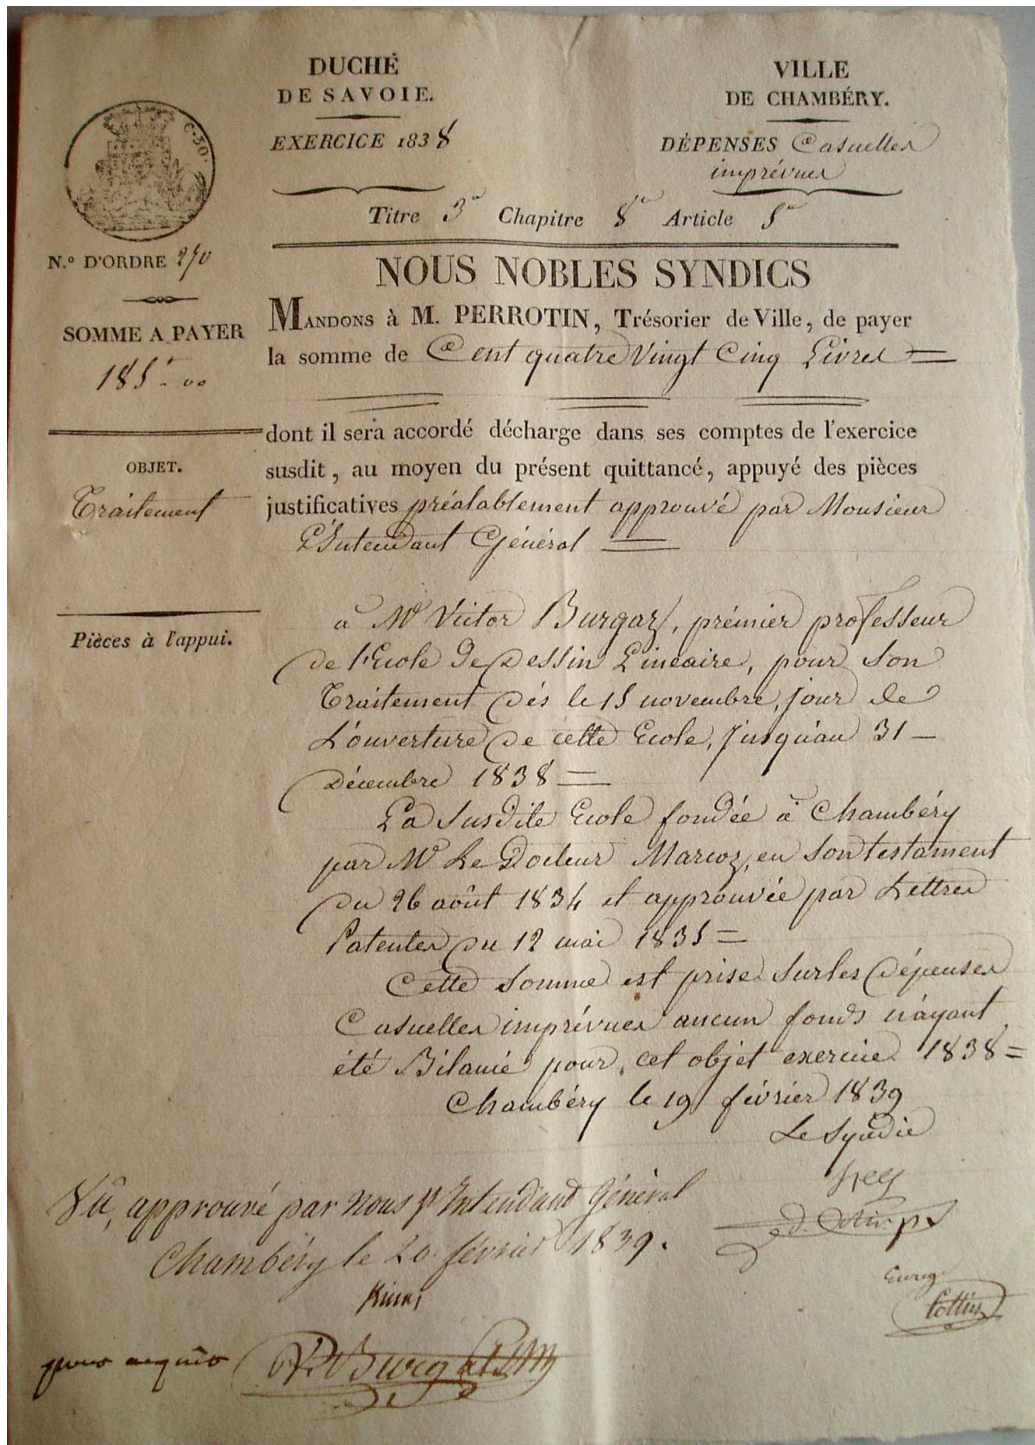 DUCHÉ
DE SAVOIE.
EXERCICE 1838
VILLE
DE CHAMBÉRY.
DÉPENSES Casuelles
imprévues
C. 30.
Titre 3e Chapitre 8e Article
N.º D'ORDRE 250
SOMME A PAYER
185
OBJET.
Traitement
Pièces à l'appui.
NOUS NOBLES SYNDICS
MANDONS à M. PERROTIN, Trésorier de Ville, de payer
la somme de Cent quatre Vingt Cinq Livres =
dont il sera accordé décharge dans ses comptes de l'exercice
susdit, au moyen du présent quittancé, appuyé des pièces
justificatives préalablement approuvé par Monsieur
L'Intendant Général =
à Mr Victor Burgaz, prémier professeur
de l'Ecole de Dessin Linéaire, pour Son
Traitement dés le 15 novembre, jour de
L'ouverture de cette Ecole, Jusqu'au 31 -
décembre 1838 =
La Susdite Ecole fondée à Chambéry
par Mr Le Docteur Marcoz, en Son testament
du 26 août 1834 et approuvée par Lettres
Patentes du 12 mai 1835 =
Cette Somme est prise Sur les dépenses
Casuelles imprévues aucun fonds n'ayant
été Bilancé pour cet objet exercice 1838 =
Chambéry le 19 février 1839
Le Syndic
Vû, approuvé par Nous Intendant Général
Chambéry le 20 février 1839.
pour acquit